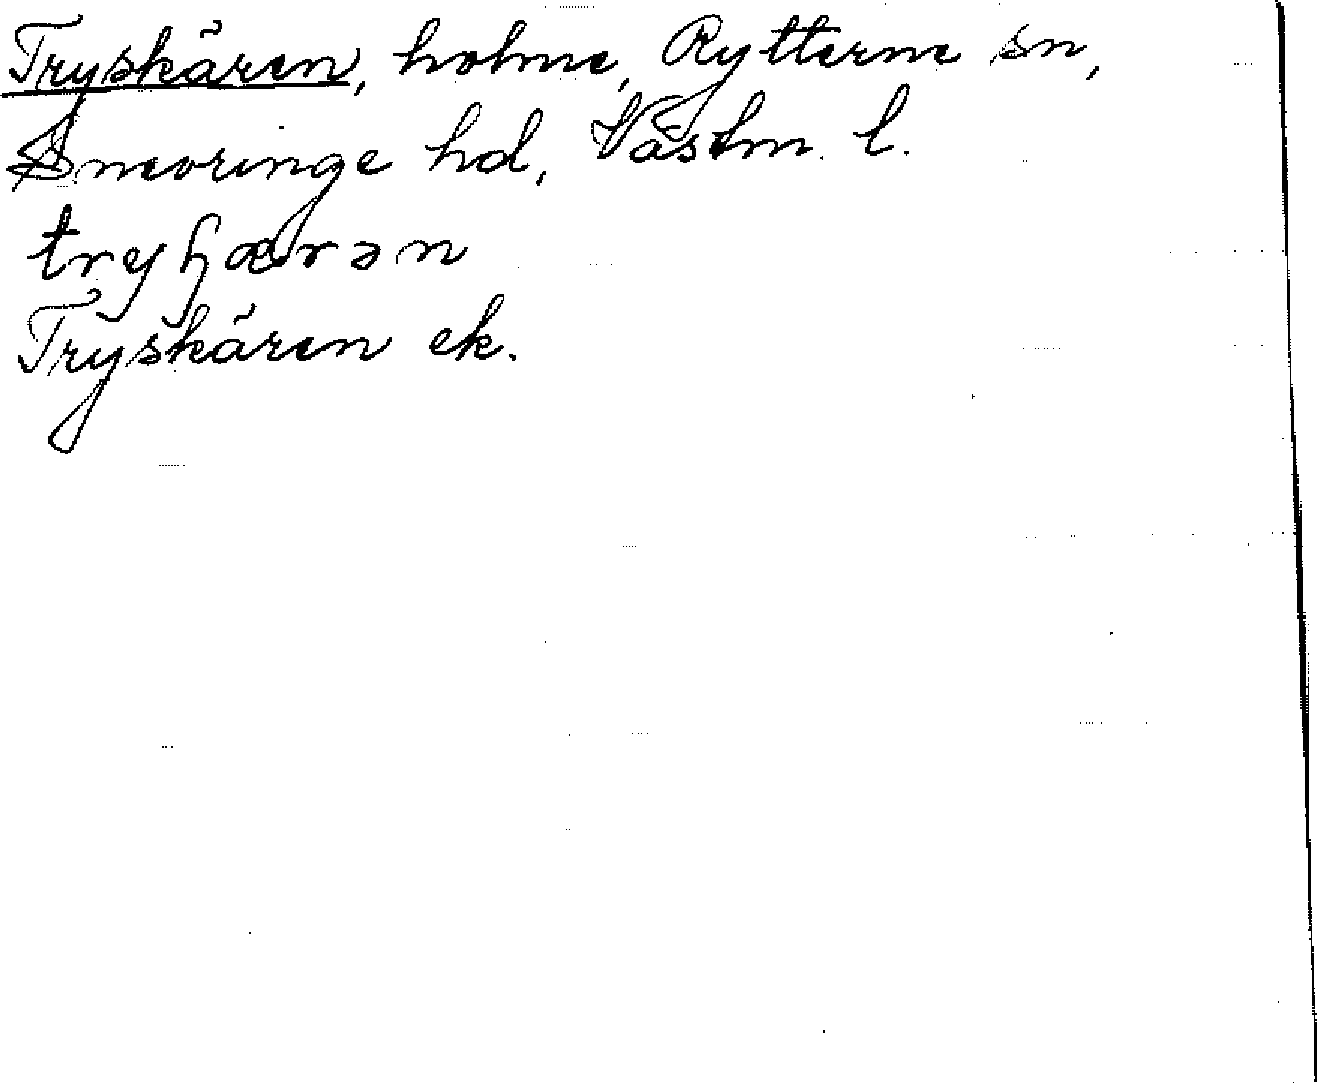 Tryskären, holme, Rytterne sn,
Snevringe hd, Västm. l.
tryɧærən
Tryskären ek.